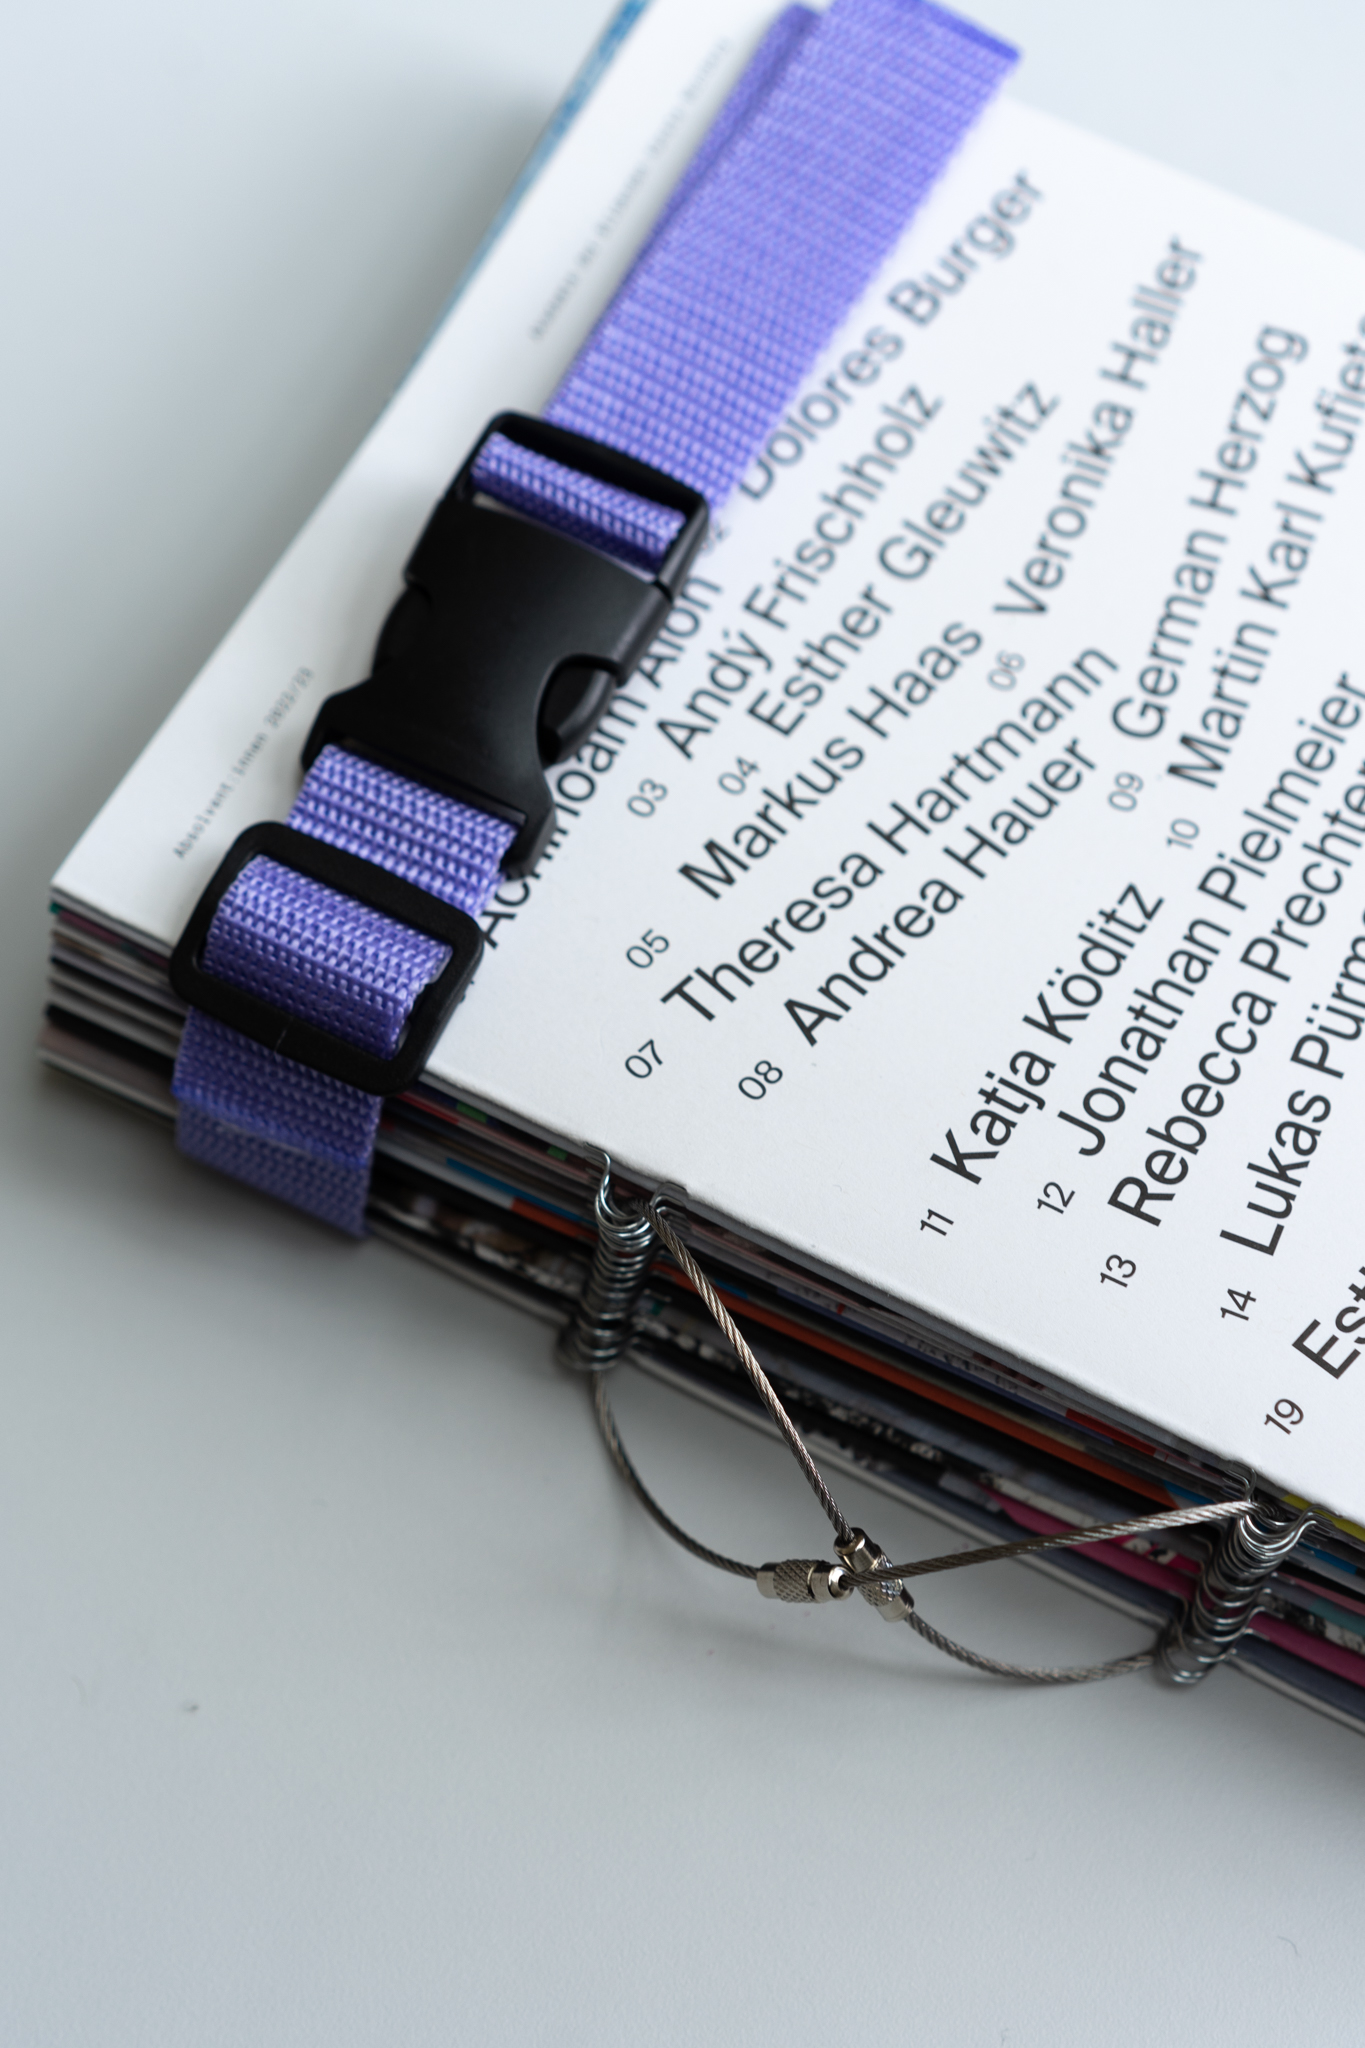 Absolvent:innen 2022/23
Dolores Burger
03 Andý Frischholz
04 Esther Gleuwitz
05 Markus Haas
06 Veronika Haller
07 Theresa Hartmann
08 Andrea Hauer
09 German Herzog
10 Martin Karl
11 Katja Köditz
12 Jonathan Pielmeier
13 Rebecca
14 Lukas
19